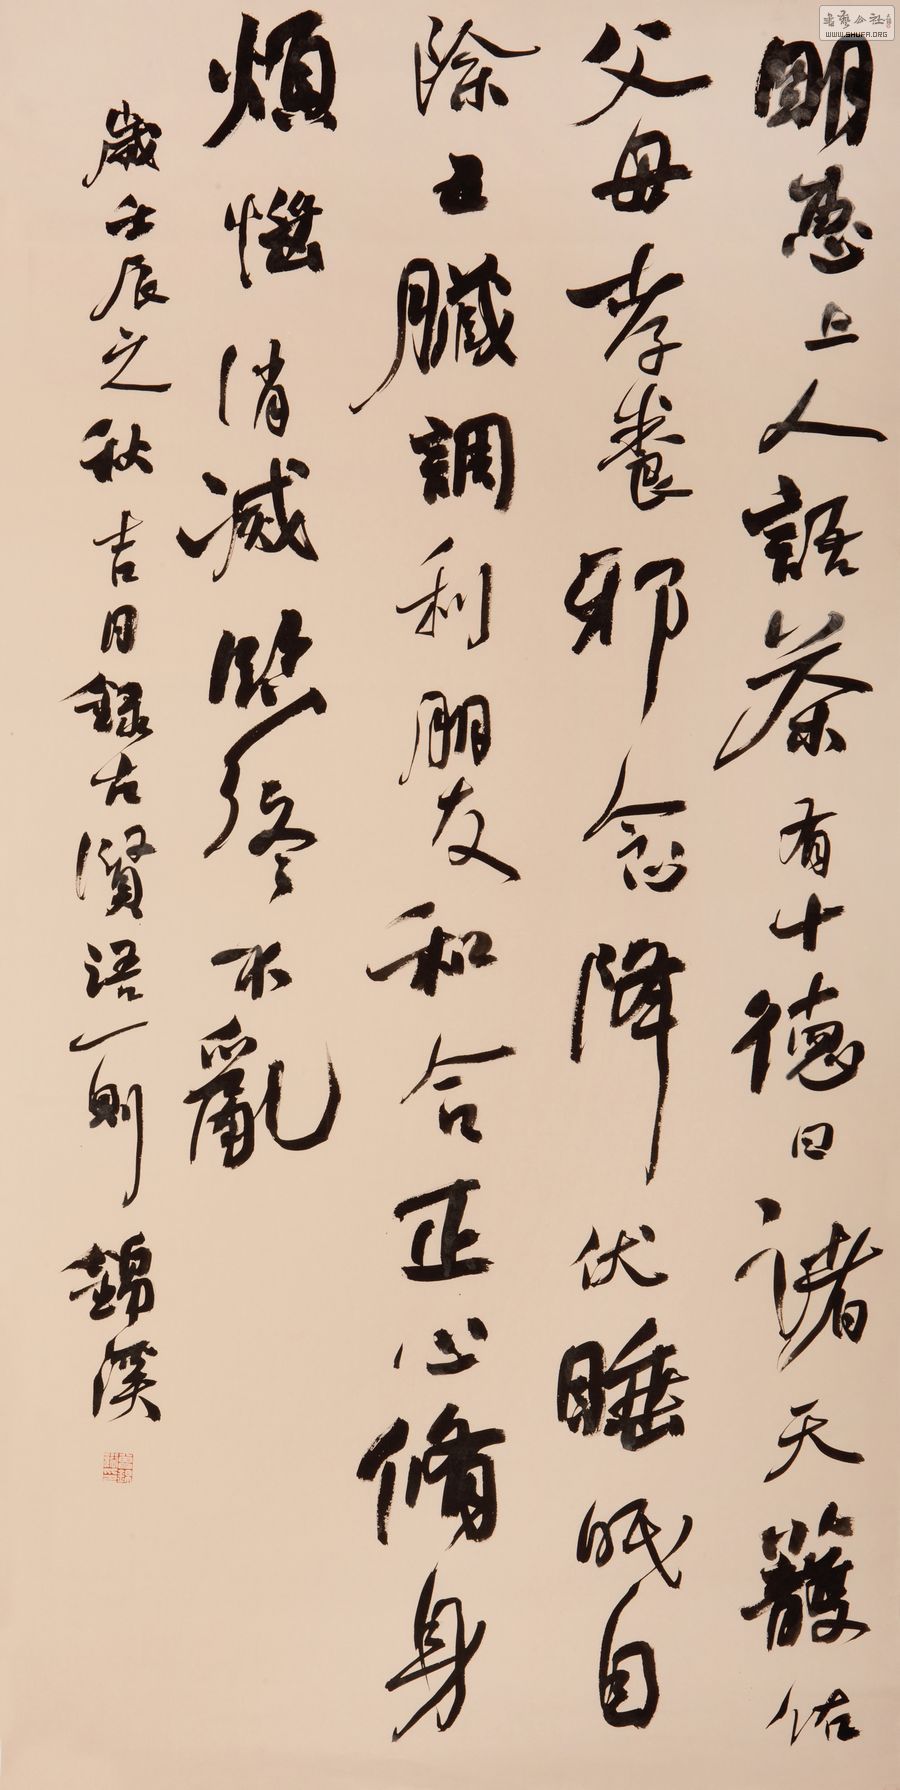 明惠上人語茶有十德曰諸天護佑
父母孝養邪念降伏睡眠自
除五臟調利朋友和合正心脩身
煩惱消滅臨終不亂
歲壬辰之秋吉日錄古賢語一則 錦溪
WWW.SHUFA.ORG